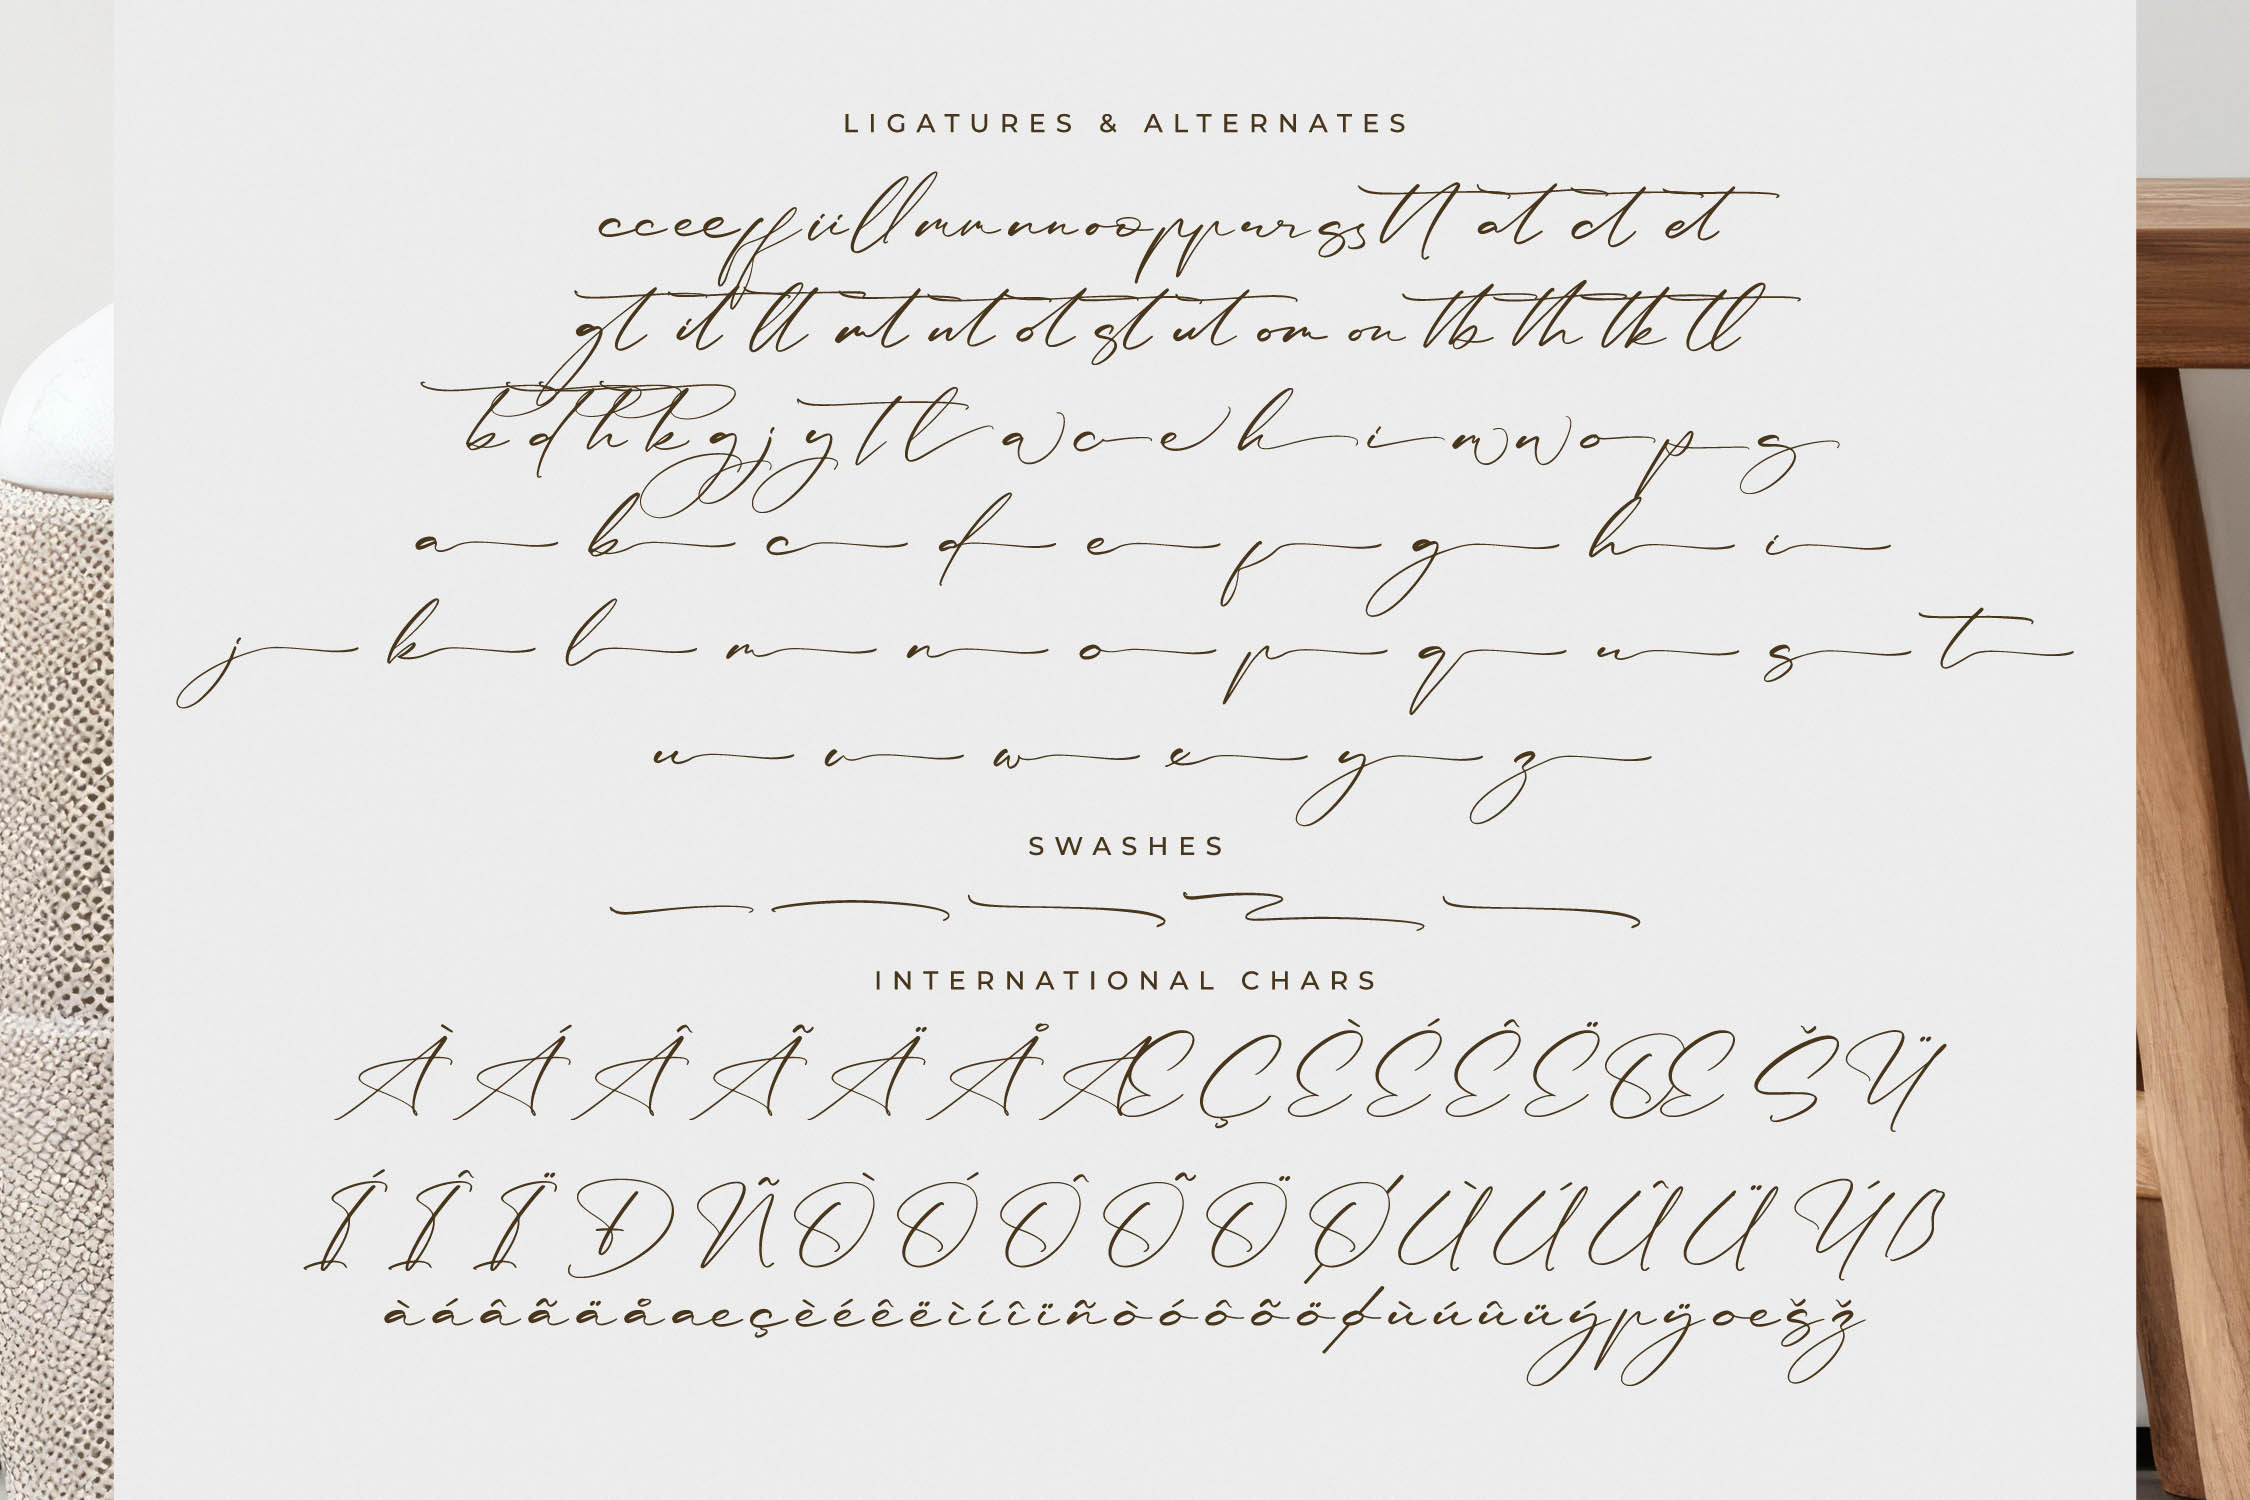 LIGATURES & ALTERNATES
cceeffiillmmnnoooppurrgsstt at ct et
gt it lt mt nt ot st ut om on tb th tk tl
b d h k g j y t l a c e h i m n o p s
a b c d e f g h i
j k l m n o p q u s t
u v w x y z
SWASHES
INTERNATIONAL CHARS
À Á Â Ã Ä Å Æ Ç È É Ê Ë Œ Š Ÿ
Í Î Ï Ð Ñ Ò Ó Ô Õ Ö Ø Ù Ú Û Ü Ý
àáâãäåaeçèéêëìíîïñòóôõöøùúûüýpÿoešž